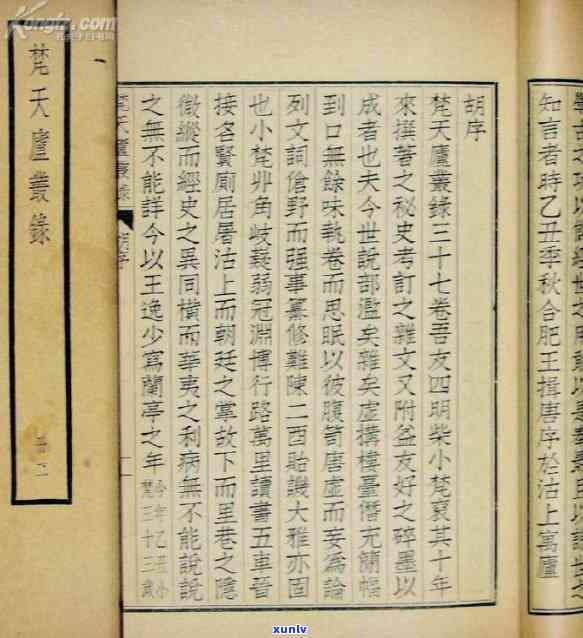 知言者時乙丑季秋合肥王揖唐序於沽上萬廬
胡序
梵天廬叢錄三十七卷吾友四明柴小梵裒其十年
來撰著之秘史考訂之雜文又附益友好之碎墨以
成者也夫今世說部濫矣雜矣虛構樓臺僭充簡幅
到口無餘味執卷而思眠以彼腹笥唐虛而妄為論
列文詞傖野而强事纂修難陳二酉貽譏大雅亦固
也小梵丱角岐嶷弱冠淵博行路萬里讀書五車晉
接名賢廁居屠沽上而朝廷之掌故下而里巷之隱
徵縱而經史之異同橫而華夷之利病無不能說說
之無不能詳今以王逸少為蘭亭之年
今年乙丑小
梵三十三歲
梵天廬叢錄 胡序 一
梵天廬叢錄
Kongfz.com
xunlv